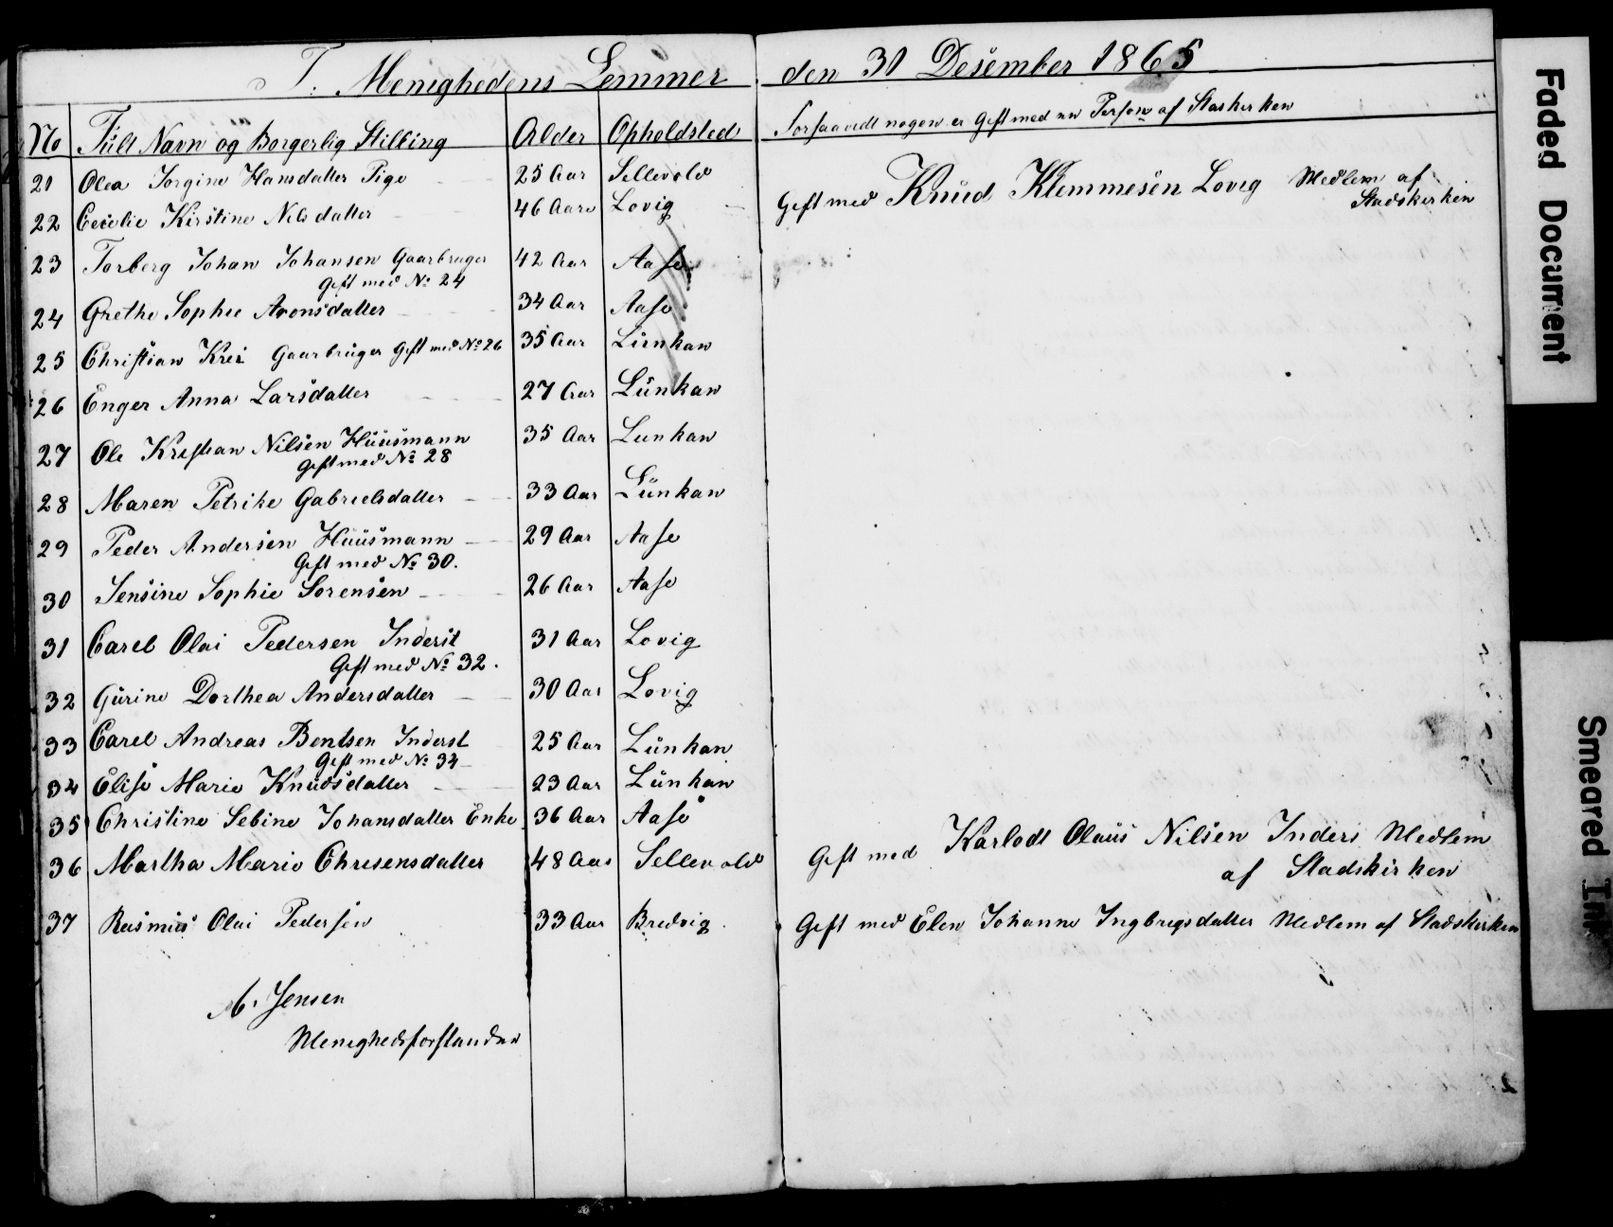 T. Menighedens Lemmer den 31 Desember 1865
No Fült Navn og Borgerlig Stilling Alder Opholdsted Forsaavidt nogen er Gift med en Person af Staskirken
21 Olea Jorgine Hansdatter Pige 25 Aar Sellevold
22 Cecelie Kirstine Nilsdatter 46 Aar Lovig Gift med Knud Klemmesen Lovig Medlem af
Stadskirken
23 Torberg Johan Johansen Gaarbruger 42 Aar Aase
Gift med No 24
24 Grethe Sophie Aronsdatter 34 Aar Aase
25 Christian Krei Gaarbruger Gift med No 26 35 Aar Lünkan
26 Enger Anna Larsdatter 27 Aar Lünkan
27 Ole Kristian Nilsen Hüüsmann 35 Aar Lunkan
Gift med No 28
28 Maren Petrike Gabrielsdatter 33 Aar Lünkan
29 Peder Andersen Hüüsmann 29 Aar Aase
Gift med No 30.
30 Jensine Sophie Sorensen 26 Aar Aase
31 Carel Olai Pedersen Inderst 31 Aar Lovig
Gift med No 32.
32 Gurine Dorthea Andersdatter 30 Aar Lovig
33 Carel Andreas Bentsen Inderst 25 Aar Lünkan
Gift med No 34
34 Elise Marie Knudsdatter 23 Aar Lünkan
35 Christine Sebine Johansdatter Enke 36 Aar Aase
36 Martha Marie Chresensdatter 48 Aar Sellevold Gift med Karlodt Olaus Nilsen Inders Medlem
af Stadskirken
37 Rasmus Olai Pedersen 33 Aar Bredvig Gift med Elen Johanne Ingbrigsdatter Medlem af Stadskirken
A. Jensen
Menighedsforstander
Faded Document
Smeared Ink